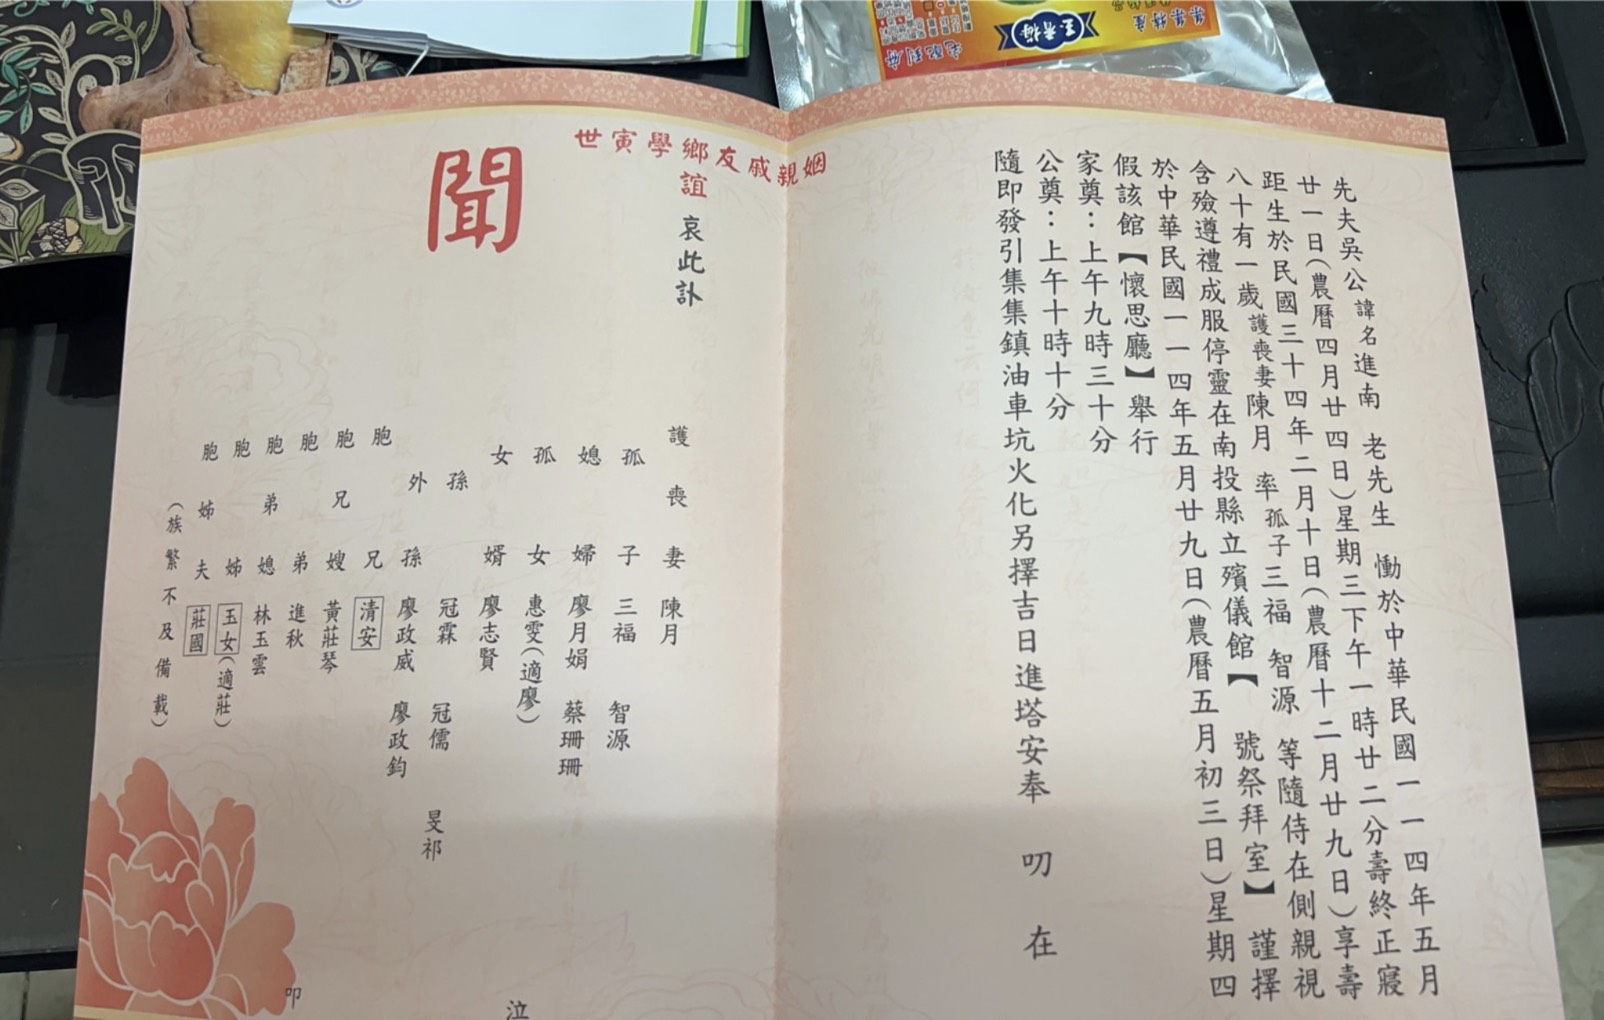 先夫吳公諱名進南 老先生 慟於中華民國一一四年五月
廿一日(農曆四月廿四日)星期三下午一時廿二分壽終正寢
距生於民國三十四年二月十日(農曆十二月廿九日)享壽
八十有一歲護喪妻陳月 率孤子三福 智源 等隨侍在側親視
含殮遵禮成服停靈在南投縣立殯儀館【 號祭拜室】謹擇
於中華民國一一四年五月廿九日(農曆五月初三日)星期四
假該館【懷思廳】舉行
家奠：上午九時三十分
公奠：上午十時十分
隨即發引集集鎮油車坑火化另擇吉日進塔安奉 叨 在
姻親戚友鄉學寅世
誼 哀此訃
聞
護喪妻 陳月
孤子 三福 智源
媳婦 廖月娟 蔡珊珊
孤女 惠雯(適廖)
女婿 廖志賢
孫 冠霖 冠儒 旻祁
外孫 廖政威 廖政鈞
胞兄 清安
胞兄嫂 黃莊琴
胞弟 進秋
胞弟媳 林玉雲
胞姊 玉女(適莊)
胞姊夫 莊國
(族繁不及備載)
泣
叩
集集特產
玉香梅